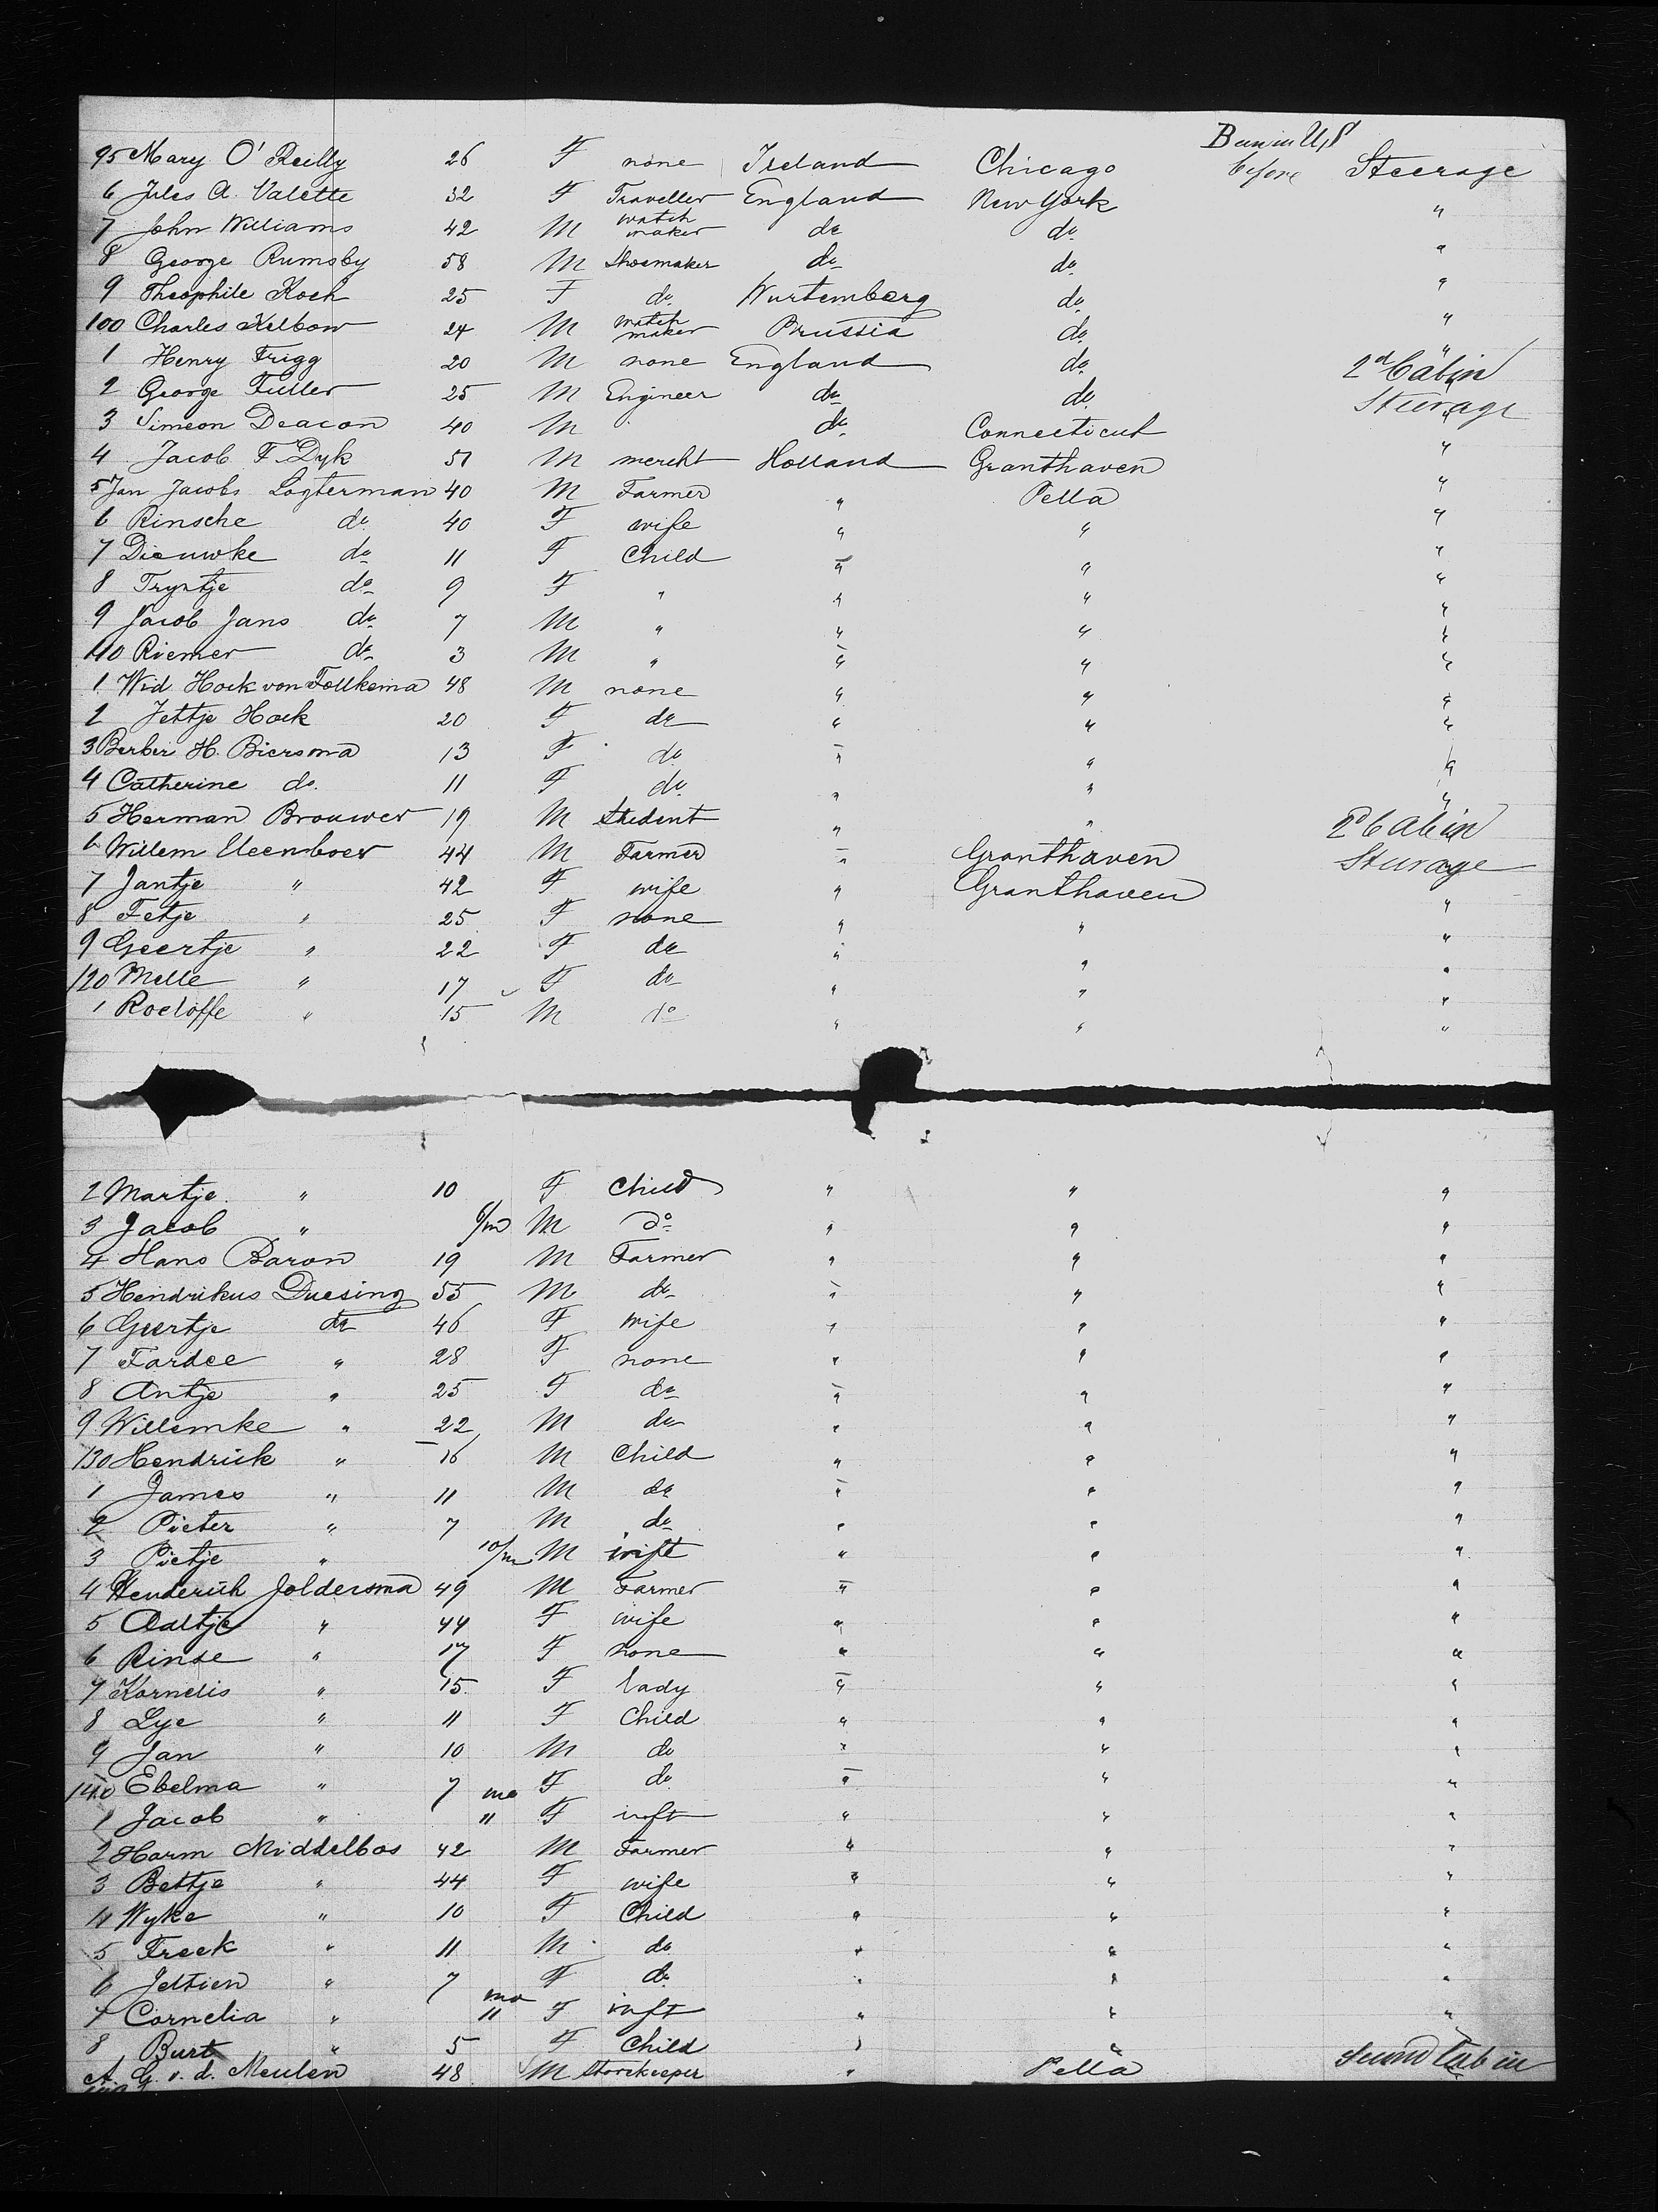 95 Mary O'Reilly 26 F none Ireland Chicago Been in U,S before Steerage
6 Jules A. Valette 32 F Traveller England New York "
7 John Williams 42 M watch maker do do "
8 George Rumsby 58 M Shoemaker do do "
9 Theophile Koch 25 F do Wurtemberg do "
100 Charles Kelbow 24 M watch maker Prussia do "
1 Henry Frigg 20 M none England do 2d Cabin
2 George Fuller 25 M Engineer do do Sturage
3 Simeon Deacon 40 M do Connecticut "
4 Jacob F. Dyk 51 M mercht Holland Granthaven "
5 Jan Jacobs Logterman 40 M Farmer " Pella "
6 Rinsche do 40 F wife " " "
7 Dieuwke do 11 F Child " " "
8 Tryntje do 9 F " " " "
9 Jacob Jans do 7 M " " " "
110 Riemer do 3 M " " " "
1 Wid Hoek von Follkema 48 M none " " "
2 Jettje Hoek 20 F do " " "
3 Berber H. Biersma 13 F do " " "
4 Catherine do 11 F do " " "
5 Herman Brouwer 19 M Student " " 2d Cabin
6 Willem 44 M Farmer " Granthaven Sturage
7 Jantje " 42 F wife " Granthaven "
8 Fetje " 25 F none " " "
9 Geertje " 22 F do " " "
120 Melle " 17 F do " " "
1 Roeloffe " 15 M do " " "
2 Martje " 10 F Child " " "
3 Jacob " 6/m M do " " "
4 Hans Baron 19 M Farmer " " "
5 Hendrikus Duesing 55 M do " " "
6 Geertje do 46 F wife " " "
7 Fardee " 28 F none " " "
8 Antje " 25 F do " " "
9 Willemke " 22 M do " " "
130 Hendrick " 16 M Child " " "
1 James " 11 M do " " "
2 Pieter " 7 M do " " "
3 Pietje " 10/m M inft " " "
4 Henderich Joldersma 49 M Farmer " " "
5 Aaltje " 44 F wife " " "
6 Rinse " 17 F none " " "
7 Kornelis " 15 F lady " " "
8 Lye " 11 F Child " " "
9 Jan " 10 M do " " "
140 Ebelma " 7 F do " " "
1 Jacob " mo 11 F inft " " "
2 Harm Middelbos 42 M Farmer " " "
3 Bettje " 44 F wife " " "
4 Wyke " 10 F Child " " "
5 Freek " 11 M do " " "
6 Jeltien " 7 F do " " "
7 Cornelia " mo 11 F inft " " "
8 Burt " 5 F Child " " "
A. G. v. d. Meulen 48 M Storekeeper " Pella Second Cabin